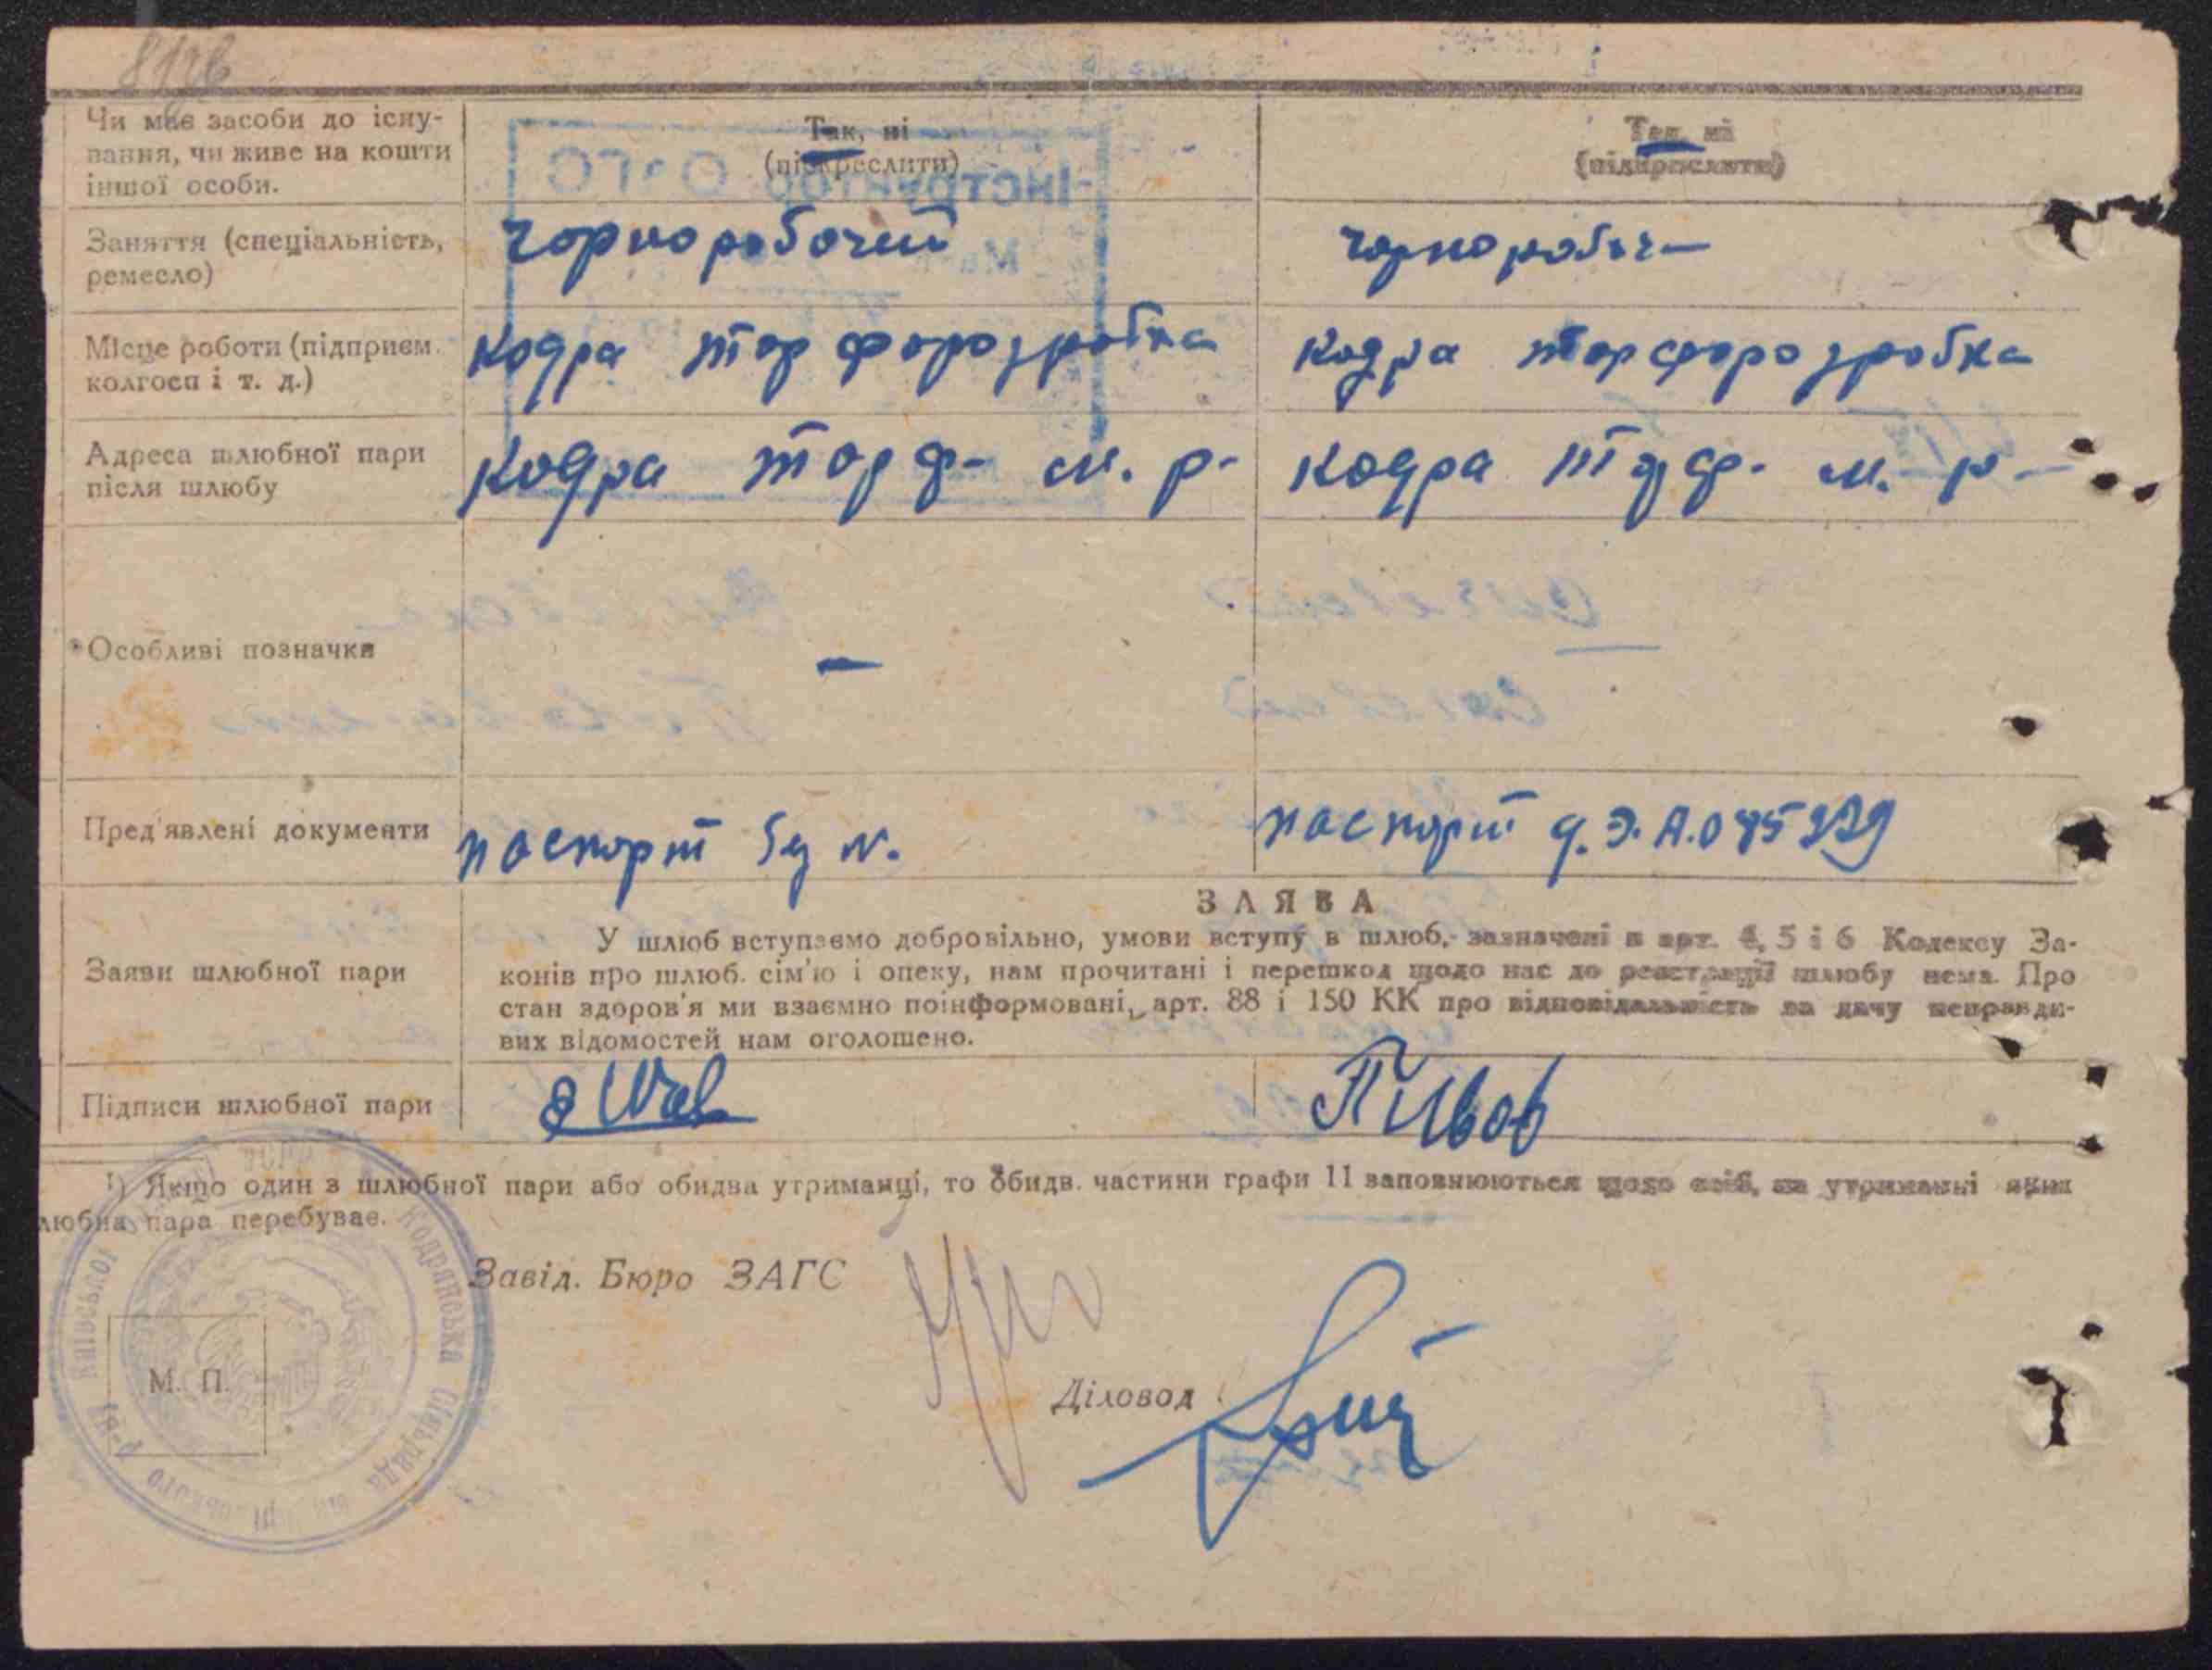 Чи має засоби до існу-
вання, чи живе на кошти
іншої особи.
Так, ні
(підкреслити)
Так, ні
(підкреслити)
Заняття (спеціальність,
ремесло)
чорноробочий
чорнороб
Місце роботи (підприєм.
колгосп і т. д.)
кодра торфорозробка
кодра торфорозробка
Адреса шлюбної пари
після шлюбу
кодра торф- м. р-
кодра торф- м. р-
Особливі позначки
–
Пред'явлені документи
паспорт
паспорт
ЗАЯВА
Заяви шлюбної пари
У шлюб вступаємо добровільно, умови вступу в шлюб, зазначені в арт. 4, 5 і 6 Кодексу За-
конів про шлюб. сім'ю і опеку, нам прочитані і перешкод щодо нас до реєстрації шлюбу нема. Про
стан здоров'я ми взаємно поінформовані, арт. 88 і 150 КК про відповідальність за дачу неправди-
вих відомостей нам оголошено.
Підписи шлюбної пари
1) Якщо один з шлюбної пари або обидва утриманці, то обидв. частини графи 11 заповнюються щодо осіб, на утриманні яких
любна пара перебуває.
Завід. Бюро ЗАГС
М. П.
Діловод
Кодрянська Сільрада
Київської